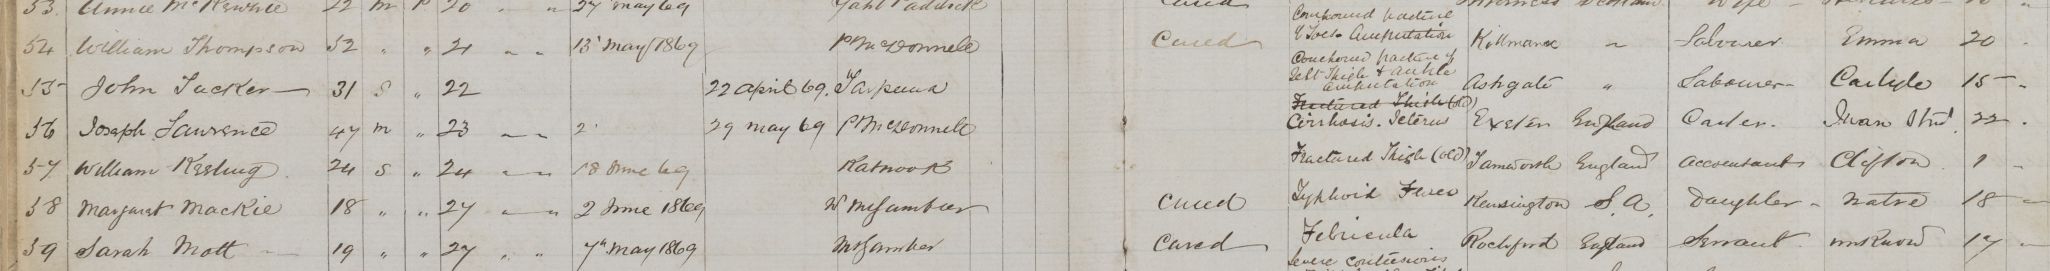 53 Annie McKewnie 22 m P 20 " " 27 may 69 Yahl Paddick Cured Inverness Scotland Wife
54 William Thompson 52 " " 21 " " 13 May 1869 P McDonnell Cured Compound fracture of Toes Amputation Kilmarx " Labourer Emma 20 "
55 John Tucker 31 S " 22 22 April 69 Tarpeena Compound fracture of left Thigh & ankle amputation Ashgate " Labourer Carlyle 15 "
56 Joseph Lawrence 47 m " 23 " " 2 29 may 69 P McDonnell Fractured Thigh (old) Cirrhosis. Icterus Exeter England Carter 22 "
57 William Keeling 24 S " 24 " " 18 June 69 Katnook Fractured Thigh (old) Tamworth England Accountant Clifton 1 "
58 Margaret Mackie 18 " " 27 " " 2 June 1869 Mt Gambier Cured Typhoid Fever Kensington S.A. Daughter native 18 "
59 Sarah Mott 19 " " 27 " " 7th May 1869 Mt Gambier Cured Febricula Rochford England Servant unknown 17 "
severe contusions